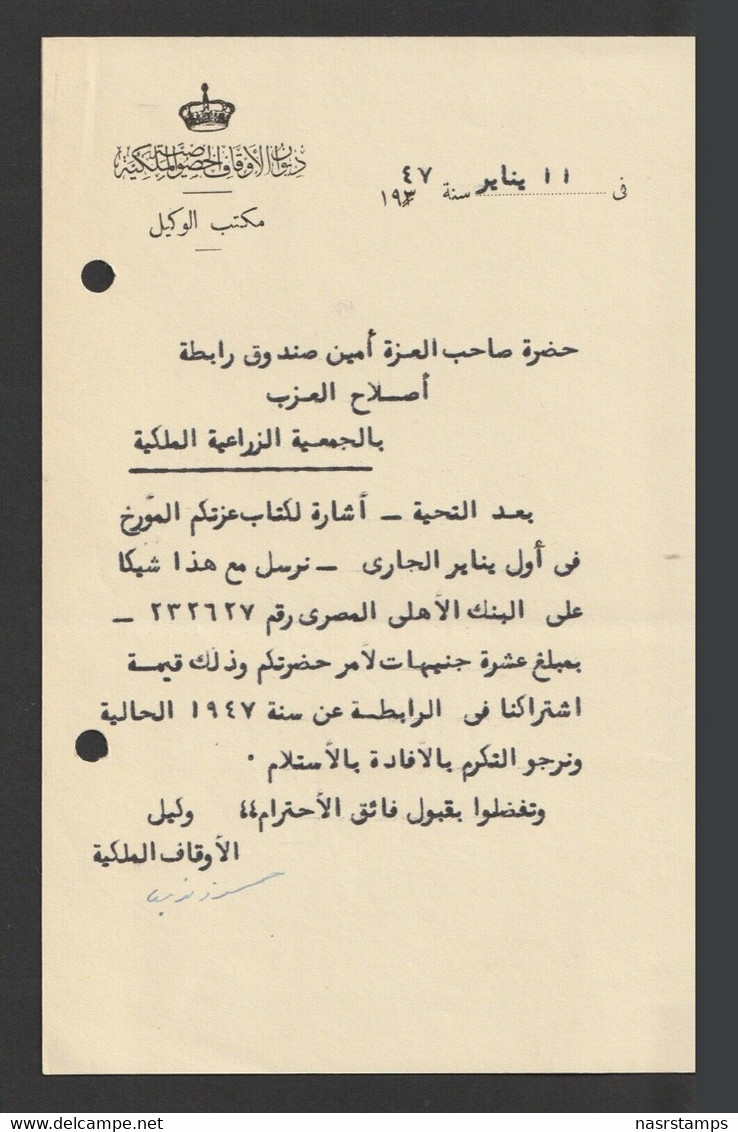 ديوان الأوقاف الخصوصية الملكية
مكتب الوكيل
فى ١١ يناير سنة ١٩٣ ٤٧
حضرة صاحب العزة أمين صندوق رابطة
أصلاح العزب
بالجمعية الزراعية الملكية
بعد التحية ــ أشارة لكتاب عزتكم المؤرخ
فى أول يناير الجارى ــ نرسل مع هذا شيكا
على البنك الأهلى المصرى رقم ٢٣٢٦٢٧ ــ
بمبلغ عشرة جنيهات لأمر حضرتكم وذلك قيمة
اشتراكنا فى الرابطة عن سنة ١٩٤٧ الحالية
ونرجو التكرم بالأفادة بالأستلام ٠
وتفضلوا بقبول فائق الأحترام ٤٤ وكيل
الأوقاف الملكية
www.delcampe.net
nasrstamps